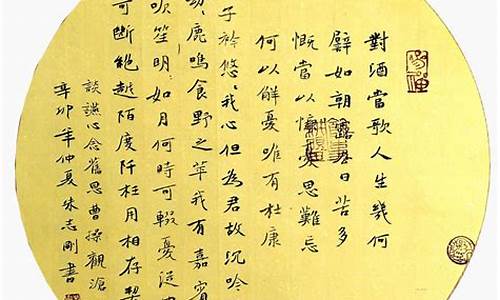 對酒當歌人生幾何
譬如朝露去日苦多
慨當以慷憂思難忘
何以解憂唯有杜康
子衿悠我心但為君故沉吟
鹿鳴食野之苹我有嘉賓
吹笙明如月何時可輟憂從
可斷絕越陌度阡枉用相存契
談讌心念舊恩曹操觀滄
辛卯年仲夏朱志剛書